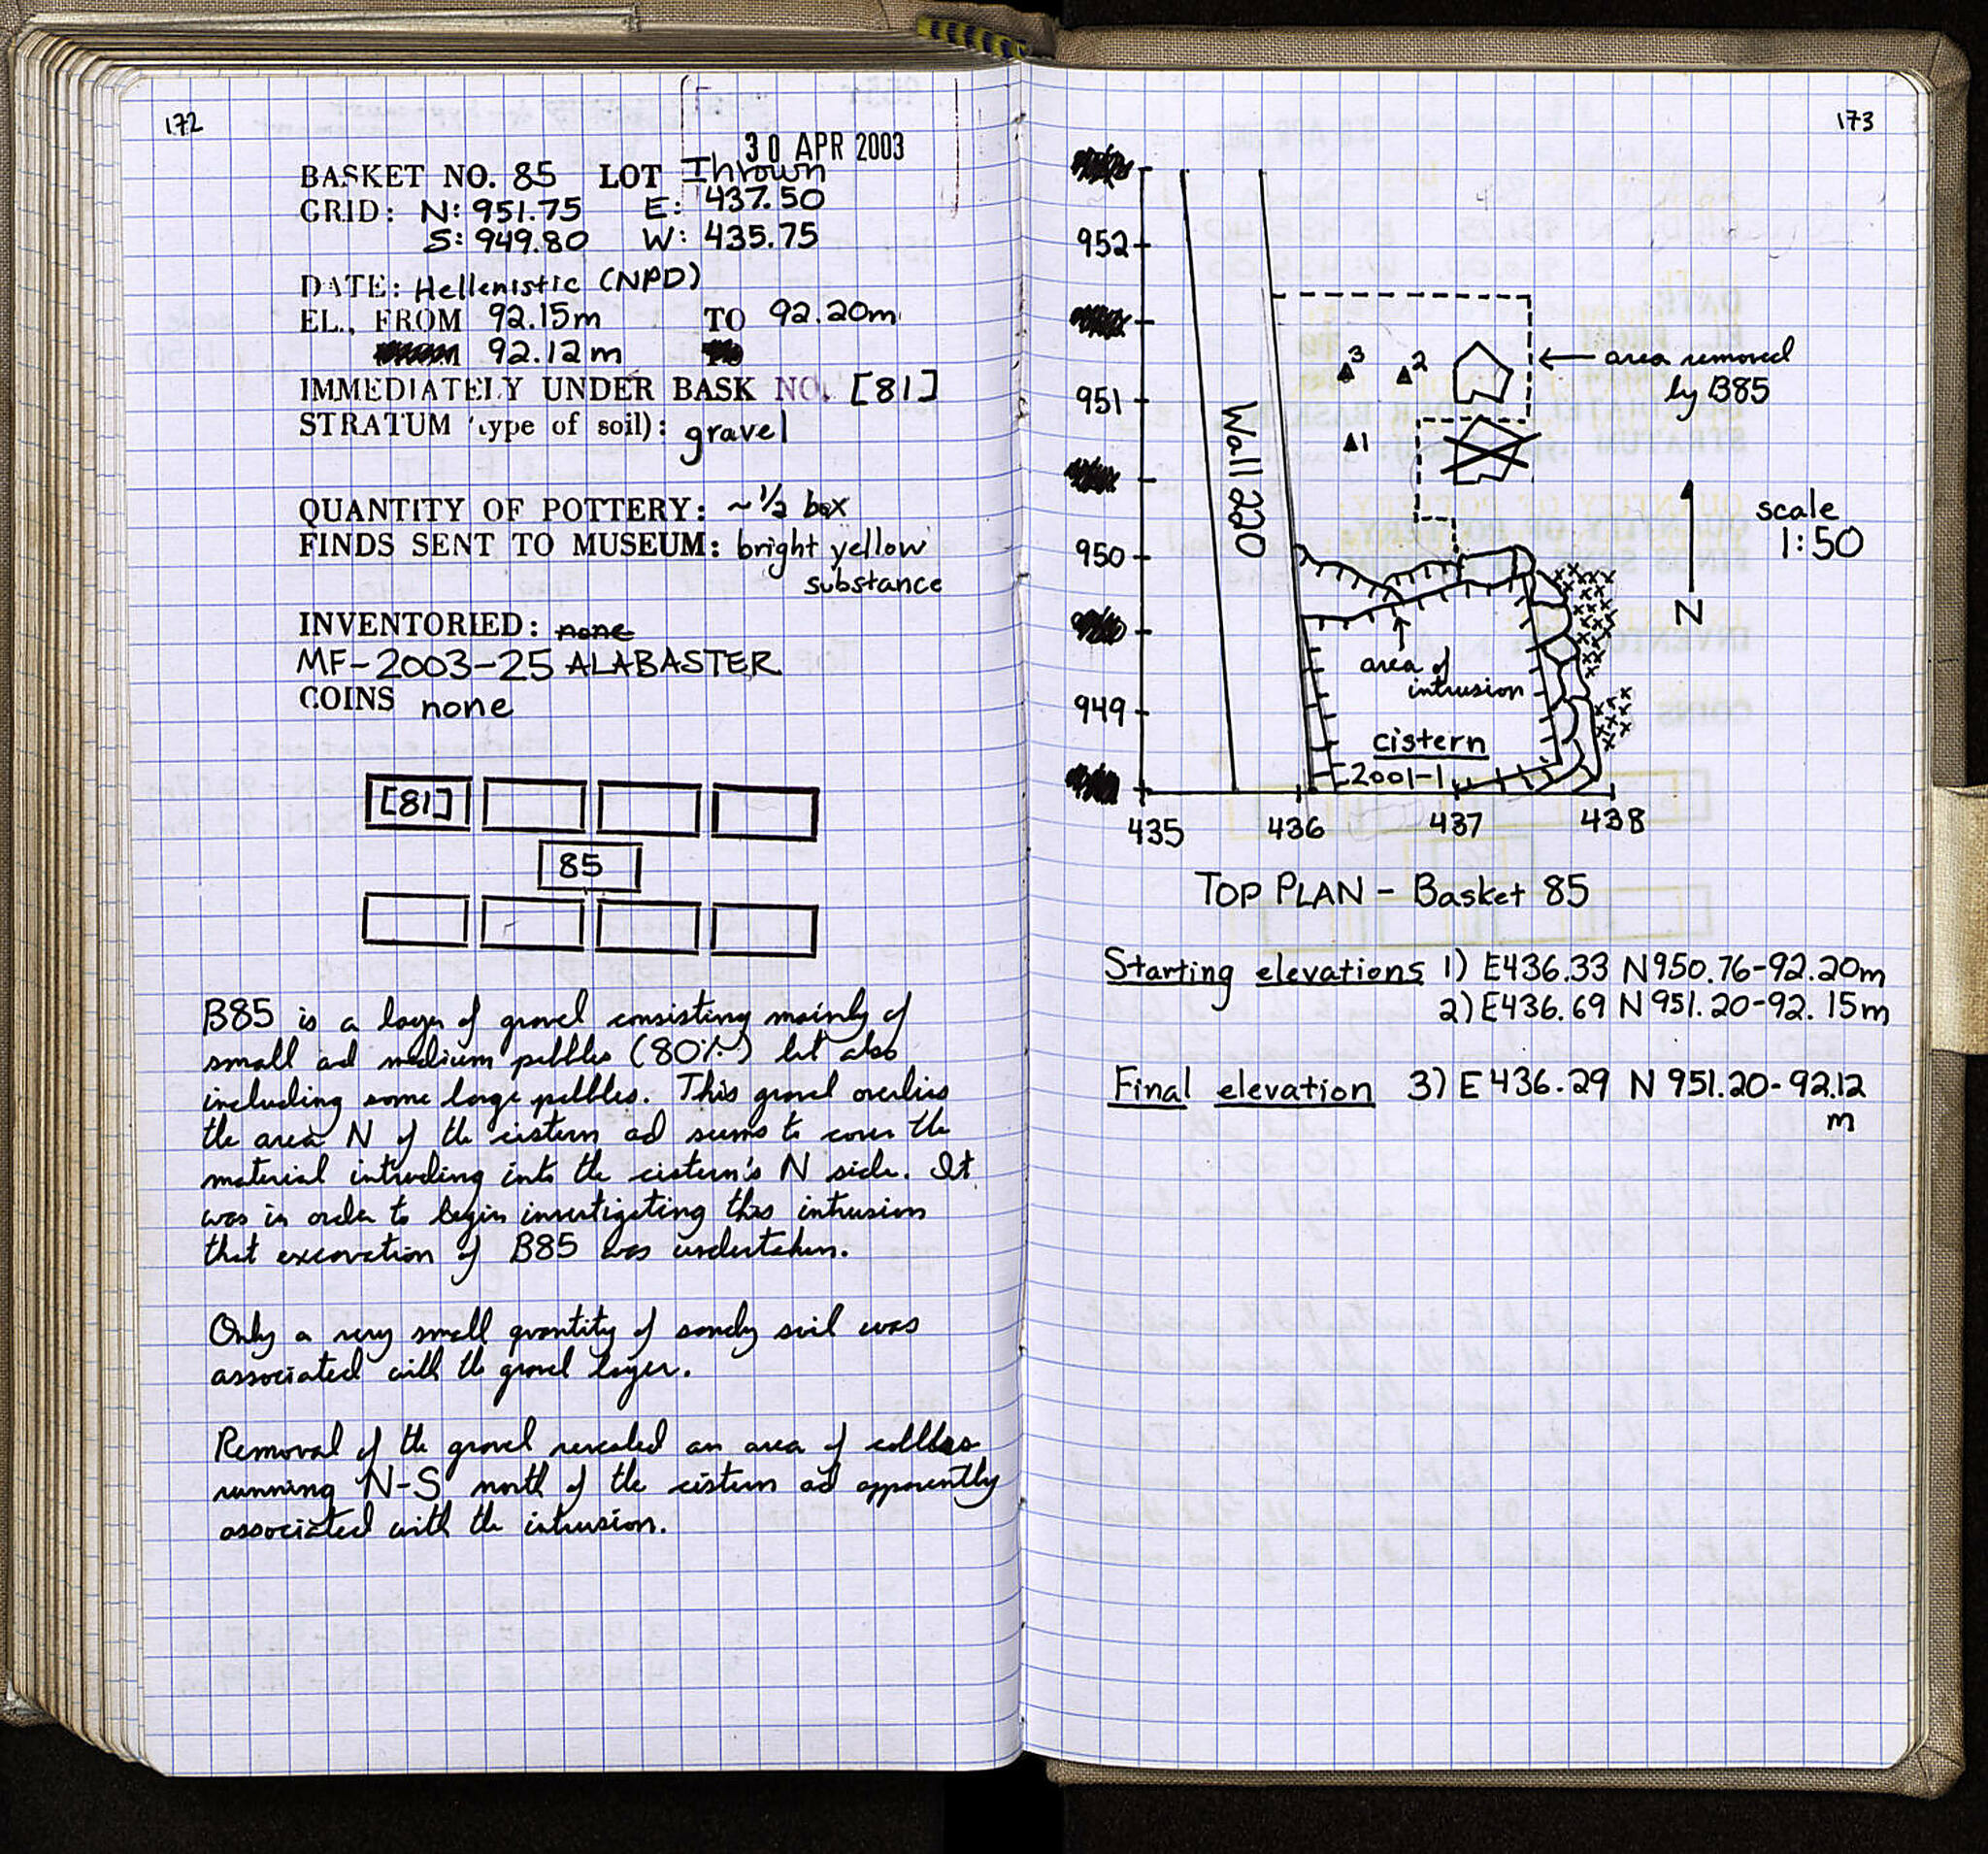 172
30 APR 2003
BASKET NO. 85 LOT Thrown
GRID: N: 951.75 E: 437.50
S: 949.80 W: 435.75
DATE: Hellenistic (NPD)
EL., FROM 92.15m TO 92.20m
92.12m
IMMEDIATELY UNDER BASK NO. [81]
STRATUM (type of soil): gravel
QUANTITY OF POTTERY: ~½ box
FINDS SENT TO MUSEUM: bright yellow
substance
INVENTORIED: none
MF-2003-25 ALABASTER
COINS none
[81]
85
B85 is a layer of gravel consisting mainly of
small ad medium pebbles (80%) but also
including some large pebbles. This gravel overlies
the area N of the cistern ad seems to cover the
material intruding into the cistern's N side. It
was in order to begin investigating this intrusion
that excavation of B85 was undertaken.
Only a very small quantity of sandy soil was
associated with the gravel layer.
Removal of the gravel revealed an area of cobbles
running N-S north of the cistern ad apparently
associated with the intrusion.
173
952
951
950
949
435 436 437 438
Wall 220
3
2
1
area removed
by B85
scale
1:50
N
area of
intrusion
cistern
2001-1
TOP PLAN - Basket 85
Starting elevations 1) E436.33 N950.76-92.20m
2) E436.69 N951.20-92.15m
Final elevation 3) E436.29 N951.20-92.12
m